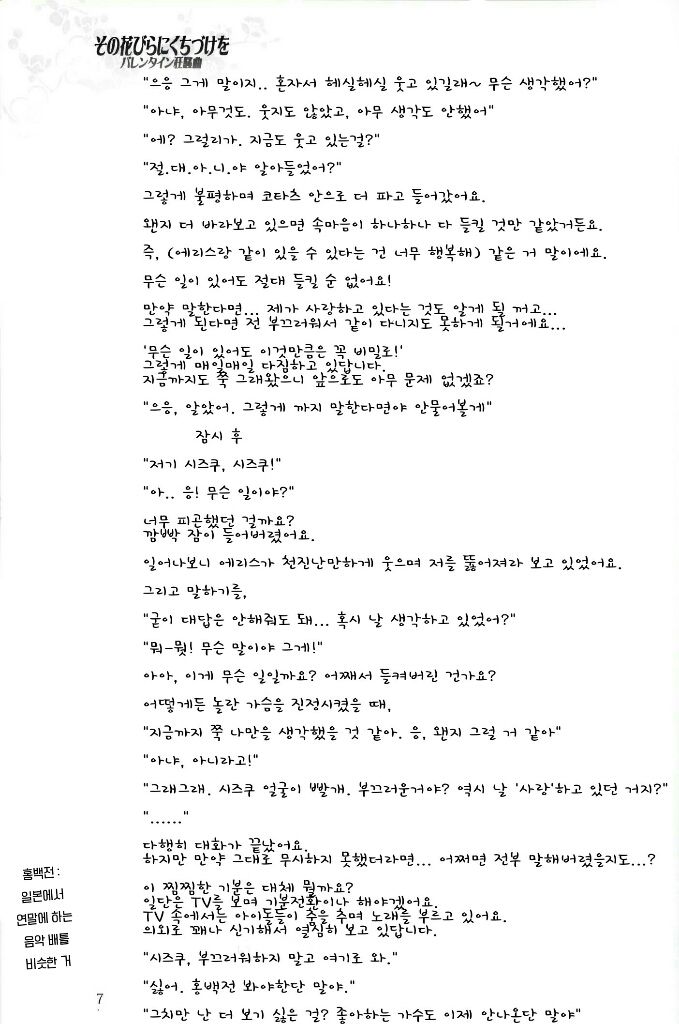 その花びらにくちづけを
バレンタイン狂騒曲
"으응 그게 말이지.. 혼자서 헤실헤실 웃고 있길래~ 무슨 생각했어?"
"아냐, 아무것도. 웃지도 않았고, 아무 생각도 안했어"
"에? 그럴리가. 지금도 웃고 있는걸?"
"절.대.아.니.야 알아들었어?"
그렇게 불평하며 코타츠 안으로 더 파고 들어갔어요.
왠지 더 바라보고 있으면 속마음이 하나하나 다 들킬 것만 같았거든요.
즉, (에리스랑 같이 있을 수 있다는 건 너무 행복해) 같은 거 말이에요.
무슨 일이 있어도 절대 들킬 순 없어요!
만약 말한다면... 제가 사랑하고 있다는 것도 알게 될 꺼고...
그렇게 된다면 전 부끄러워서 같이 다니지도 못하게 될거에요...
'무슨 일이 있어도 이것만큼은 꼭 비밀로!'
그렇게 매일매일 다짐하고 있답니다.
지금까지도 쭉 그래왔으니 앞으로도 아무 문제 없겠죠?
"으응, 알았어. 그렇게 까지 말한다면야 안물어볼게"
잠시 후
"저기 시즈쿠, 시즈쿠!"
"아.. 응! 무슨 일이야?"
너무 피곤했던 걸까요?
깜빡 잠이 들어버렸어요.
일어나보니 에리스가 천진난만하게 웃으며 저를 뚫어져라 보고 있었어요.
그리고 말하기를,
"굳이 대답은 안해줘도 돼... 혹시 날 생각하고 있었어?"
"뭐-뭣! 무슨 말이야 그게!"
아아, 이게 무슨 일일까요? 어째서 들켜버린 건가요?
어떻게든 놀란 가슴을 진정시켰을 때,
"지금까지 쭉 나만을 생각했을 것 같아. 응, 왠지 그럴 거 같아"
"아냐, 아니라고!"
"그래그래. 시즈쿠 얼굴이 빨개. 부끄러운거야? 역시 날 '사랑'하고 있던 거지?"
"......"
다행히 대화가 끝났어요.
하지만 만약 그대로 무시하지 못했더라면... 어쩌면 전부 말해버렸을지도...?
이 찜찜한 기분은 대체 뭘까요?
일단은 TV를 보며 기분전환이나 해야겠어요.
TV 속에서는 아이돌들이 춤을 추며 노래를 부르고 있어요.
의외로 꽤나 신기해서 열심히 보고 있답니다.
"시즈쿠, 부끄러워하지 말고 여기로 와."
"싫어. 홍백전 봐야한단 말야."
"그치만 난 더 보기 싫은 걸? 좋아하는 가수도 이제 안나온단 말야"
홀백전 :
일본에서
연말에 하는
음악 배틀
비슷한 거
7